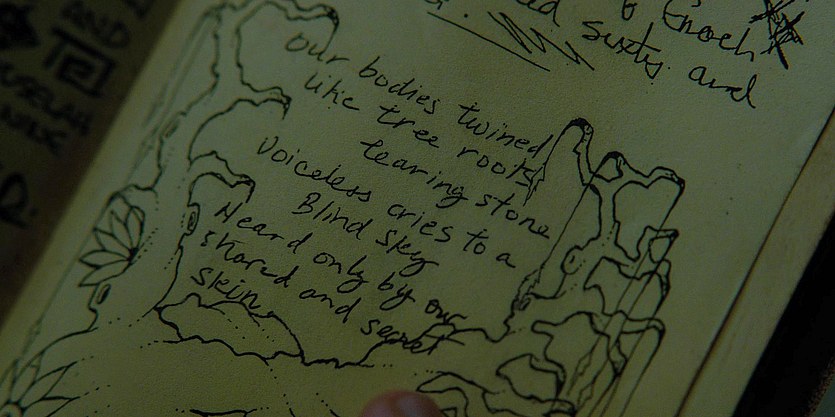 Enoch
sixty and
AND
Our bodies twined
like tree roots
tearing stone
Voiceless cries to a
Blind sky
Heard only by our
shared and secret
skin.